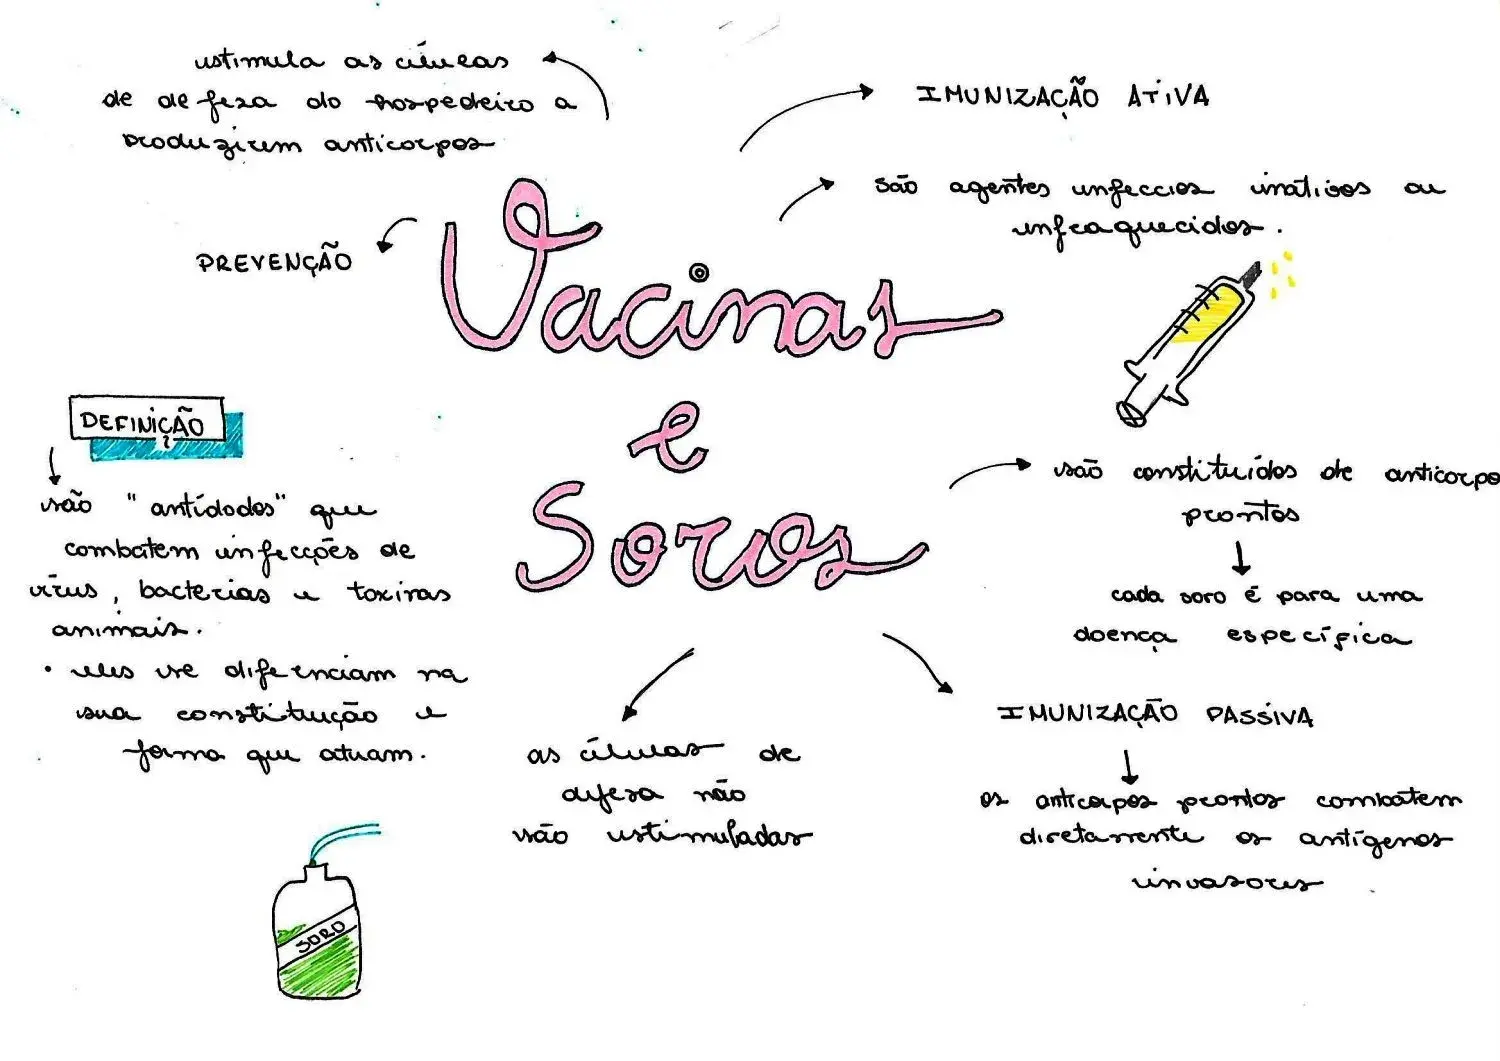 estimula as células
de defeza do hospedeiro a
produzirem anticorpos
IMUNIZAÇÃO ATIVA
são agentes infeccios inativos ou
enfraquecidos.
PREVENÇÃO
Vacinas
e
Soros
DEFINIÇÃO
são "antídodos" que
combatem infecções de
vírus, bacterias e toxinas
animais.
• eles se difenciam na
sua constituição e
forma que atuam.
são constituídos de anticorpo
prontos
cada soro é para uma
doença específica
IMUNIZAÇÃO PASSIVA
os anticorpos prontos combatem
diretamente os antígenos
invasores
as células de
difesa não
são estimuladas
SORO